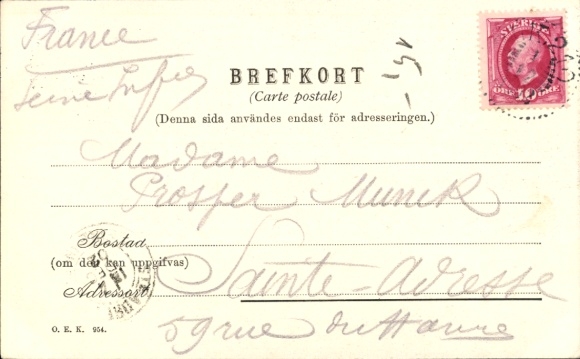 France
Seine Infre
BREFKORT
(Carte postale)
(Denna sida användes endast för adresseringen.)
SVERIGE
10 ÖRE
Madame
Prosper Munck
Bostad
(om den kan uppgifvas)
Sainte-Adresse
Adressort
59 rue du Havre
O. E. K. 954.